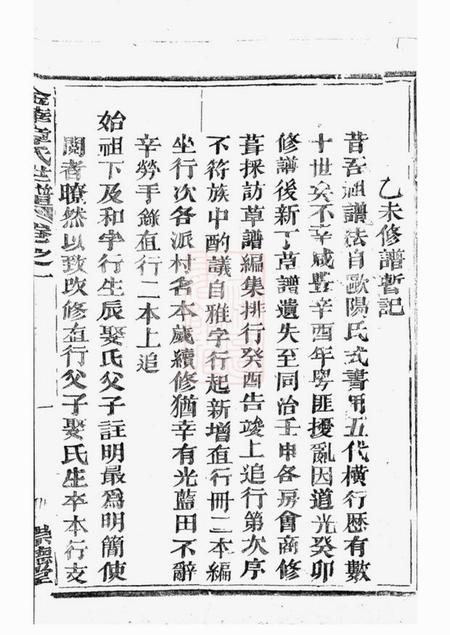 乙未修譜暫記
昔吾祖譜法自歐陽氏式書用五代橫行歷有數
十世矣不辛咸豐辛酉年粵匪擾亂因道光癸卯
修譜後新丁草譜遺失至同治壬申各房會商修
葺採訪草譜編集排行癸酉告竣上追行第次序
不符族中酌議自雅字行起新增直行冊二本編
坐行次各派村各本歲續修猶辛有光藍田不辭
辛勞手錄直行二本上追
始祖下及和字行生辰娶氏父子註明最為明簡使
閱者瞭然以致攷修直行父子娶氏生卒本行支
氏世譜
卷之一
一